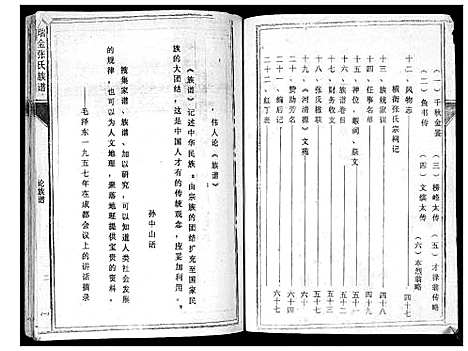 (一)千秋金鉴 (三)榜峰太传 (五)才渌翁传略
(二)鱼书传 (四)文烺太传 (六)本烈翁略
十二、风物志 四十七
横街张氏宗祠记
十三、族规家训 四十八
十四、任事名单 四十九
十五、神位、歌词、祭文 五十一
十六、族谱卷目
十七、财务收支
十八、张氏楹联 五十三
十九、《河清源》文苑
二十、赞助芳名
二十一、后记 六十六
二十二、红丁表 六十七
瑞金张氏族谱
论族谱
伟人论《族谱》
《族谱》记述中华民族，由宗族的团结扩充至国家民
族的大团结，这是中国人才有的传统观念，应妥加利用。
孙中山语
搜集家谱、族谱，加以研究，可以知道人类社会发展
的规律，也可以为人文地理，聚落地理提供宝贵的资料。
毛泽东一九五七年在成都会议上的讲话摘录